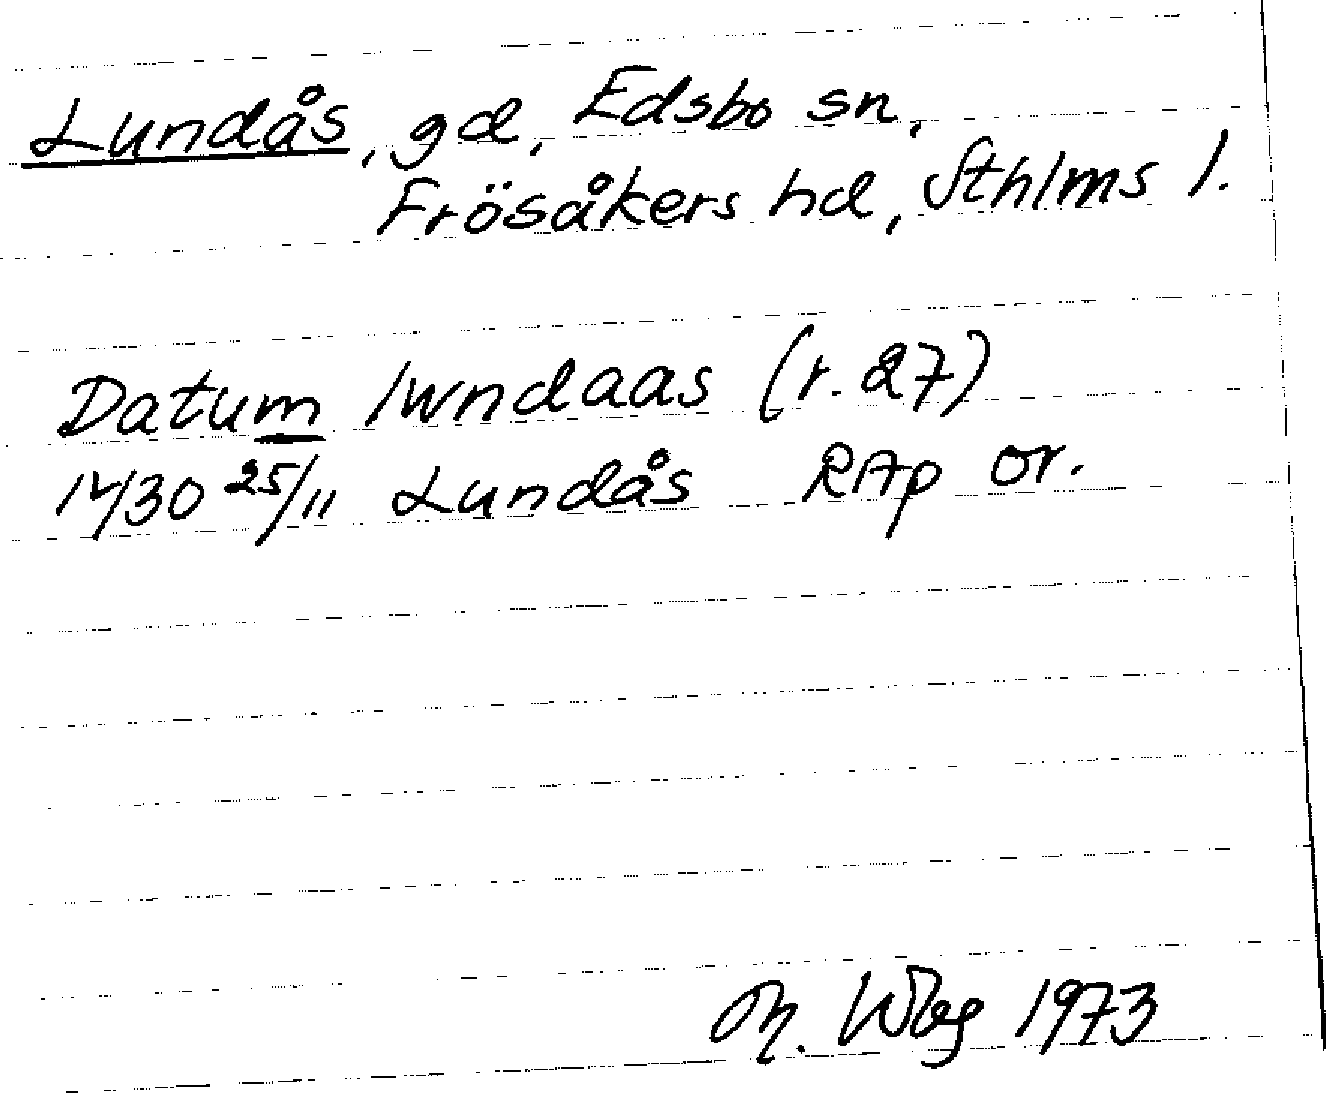 Lundås, gd, Edsbo sn,
Frösåkers hd, Sthlms l.
Datum lwndaas (r. 27)
1430 25/11 Lundås RAp or.
M. Wbg 1973